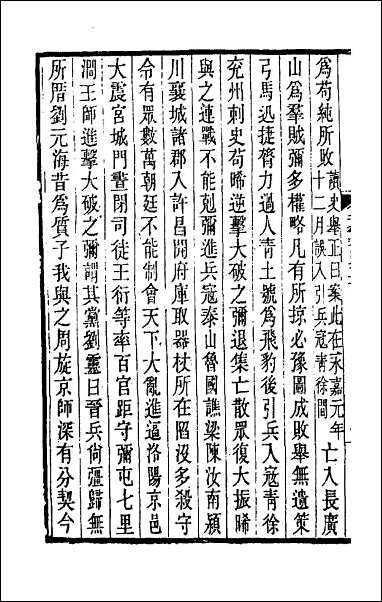 為苟純所敗讀史舉正曰案此在永嘉元年十二月誤入引兵寇青徐間亡入長廣
山為羣賊彌多權略凡有所掠必豫圖成敗舉無遺策
弓馬迅捷膂力過人青土號為飛豹後引兵入寇青徐
兗州刺史苟晞逆擊大破之彌退集亡散眾復大振晞
與之連戰不能剋彌進兵寇泰山魯國譙梁陳汝南潁
川襄城諸郡入許昌開府庫取器杖所在陷沒多殺守
令有眾數萬朝廷不能制會天下大亂進逼洛陽京邑
大震宮城門晝閉司徒王衍等率百官距守彌屯七里
澗王師進擊大破之彌謂其黨劉靈曰晉兵尚彊歸無
所厝劉元海昔為質子我與之周旋京師深有分契今